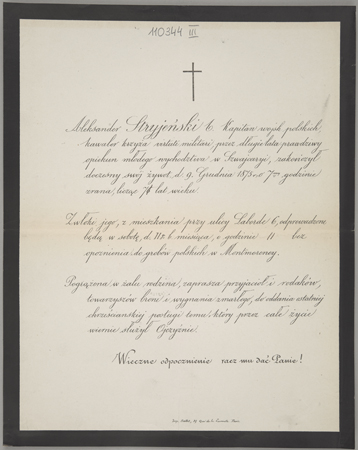 110344 III
Aleksander Stryjeński b. Kapitan wojsk polskich,
kawaler krzyża virtuti militari, przez długie lata prawdziwy
opiekun młodego wychodztwa w Szwajcaryi, zakończył
doczesny swój żywot d. 9. Grudnia 1875 o 7ej godzinie
z rana, licząc 71 lat wieku.
Zwłoki jego, z mieszkania przy ulicy Laborde 6, odprowadzone
będą w sobotę, d. 11 b. miesiąca, o godzinie 11 bez
opóźnienia do grobów polskich w Montmorency.
Pogrążona w żalu rodzina, zaprasza przyjaciół i rodaków,
towarzyszów broni i wygnania zmarłego, do oddania ostatniej
chrześcianskiej posługi temu, który przez całe życie
wiernie służył Ojczyźnie.
Wieczne odpocznienie racz mu dać Panie!